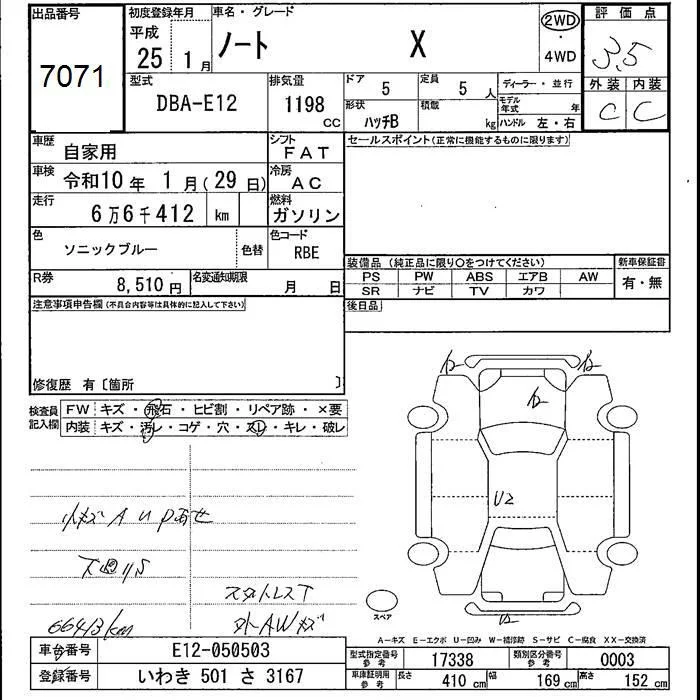 出品番号
7071
初度登録年月
平成
25 1月
車名・グレード
ノート X
2WD
4WD
評価点
3.5
外装 内装
C C
型式
DBA-E12
排気量
1198
CC
ドア
5
定員
5人
形状
ハッチB
積載
kg
ディーラー・並行
モデル年式 年
ハンドル 左・右
車歴
自家用
シフト
FAT
車検
令和10年 1月(29日)
冷房
AC
走行
6万6千412 km
燃料
ガソリン
色
ソニックブルー
色替
色コード
RBE
R券
8,510円
名変通知期限
月 日
セールスポイント(正常に機能するものに限ります)
装備品 (純正品に限り○をつけてください)
PS PW ABS エアB AW
SR ナビ TV カワ
新車保証書
有・無
後日品
注意事項申告欄(不具合内容等は具体的に記入して下さい)
修復歴 有〔箇所 〕
検査員
記入欄
FW キズ・飛石・ヒビ割・リペア跡・×要
内装 キズ・汚レ・コゲ・穴・スレ・キレ・破レ
小キズ A U Pあせ
下廻りS
66413km
スタットレスT
外AWキズ
U2
U2
スペア
A−キズ E−エクボ U−凹み W−補修跡 S−サビ C−腐食 XX−交換済
車台番号
E12-050503
登録番号
いわき 501 さ 3167
型式指定番号
参考
17338
類別区分番号
参考
0003
車庫証明用
参考
長さ 410cm 幅 169cm 高さ 152cm